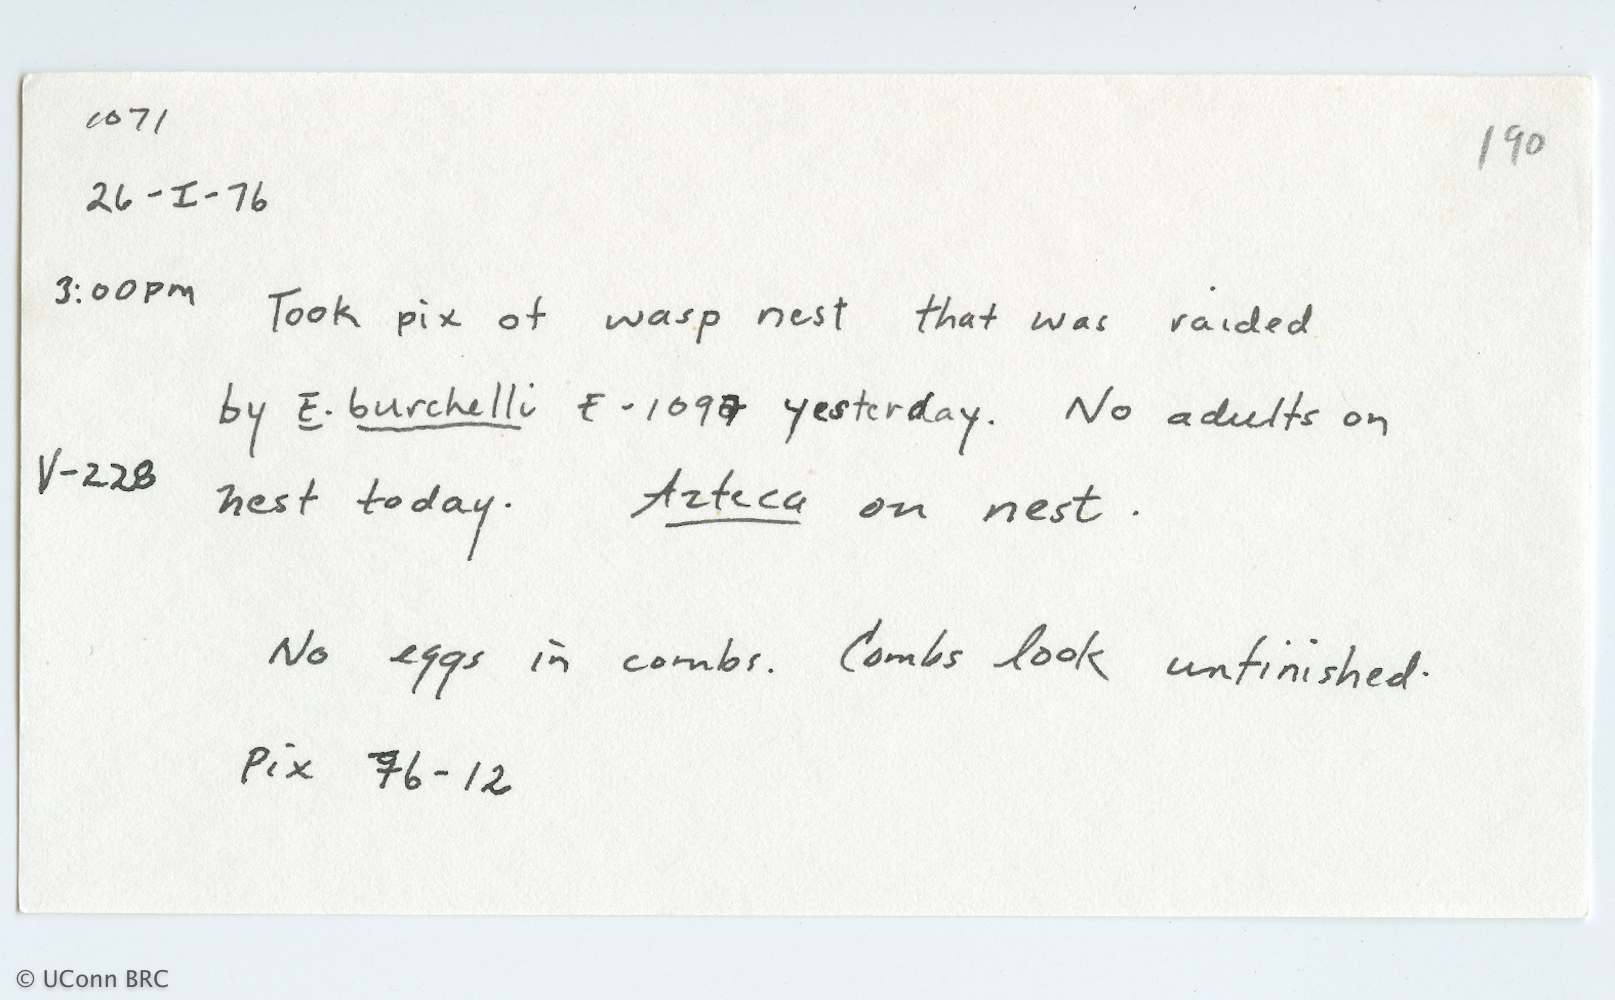 1071
190
26-I-76
3:00pm Took pix of wasp nest that was raided
by E. burchelli E-1097 yesterday. No adults on
V-228 nest today. Azteca on nest.
No eggs in combs. Combs look unfinished.
Pix 76-12
© UConn BRC